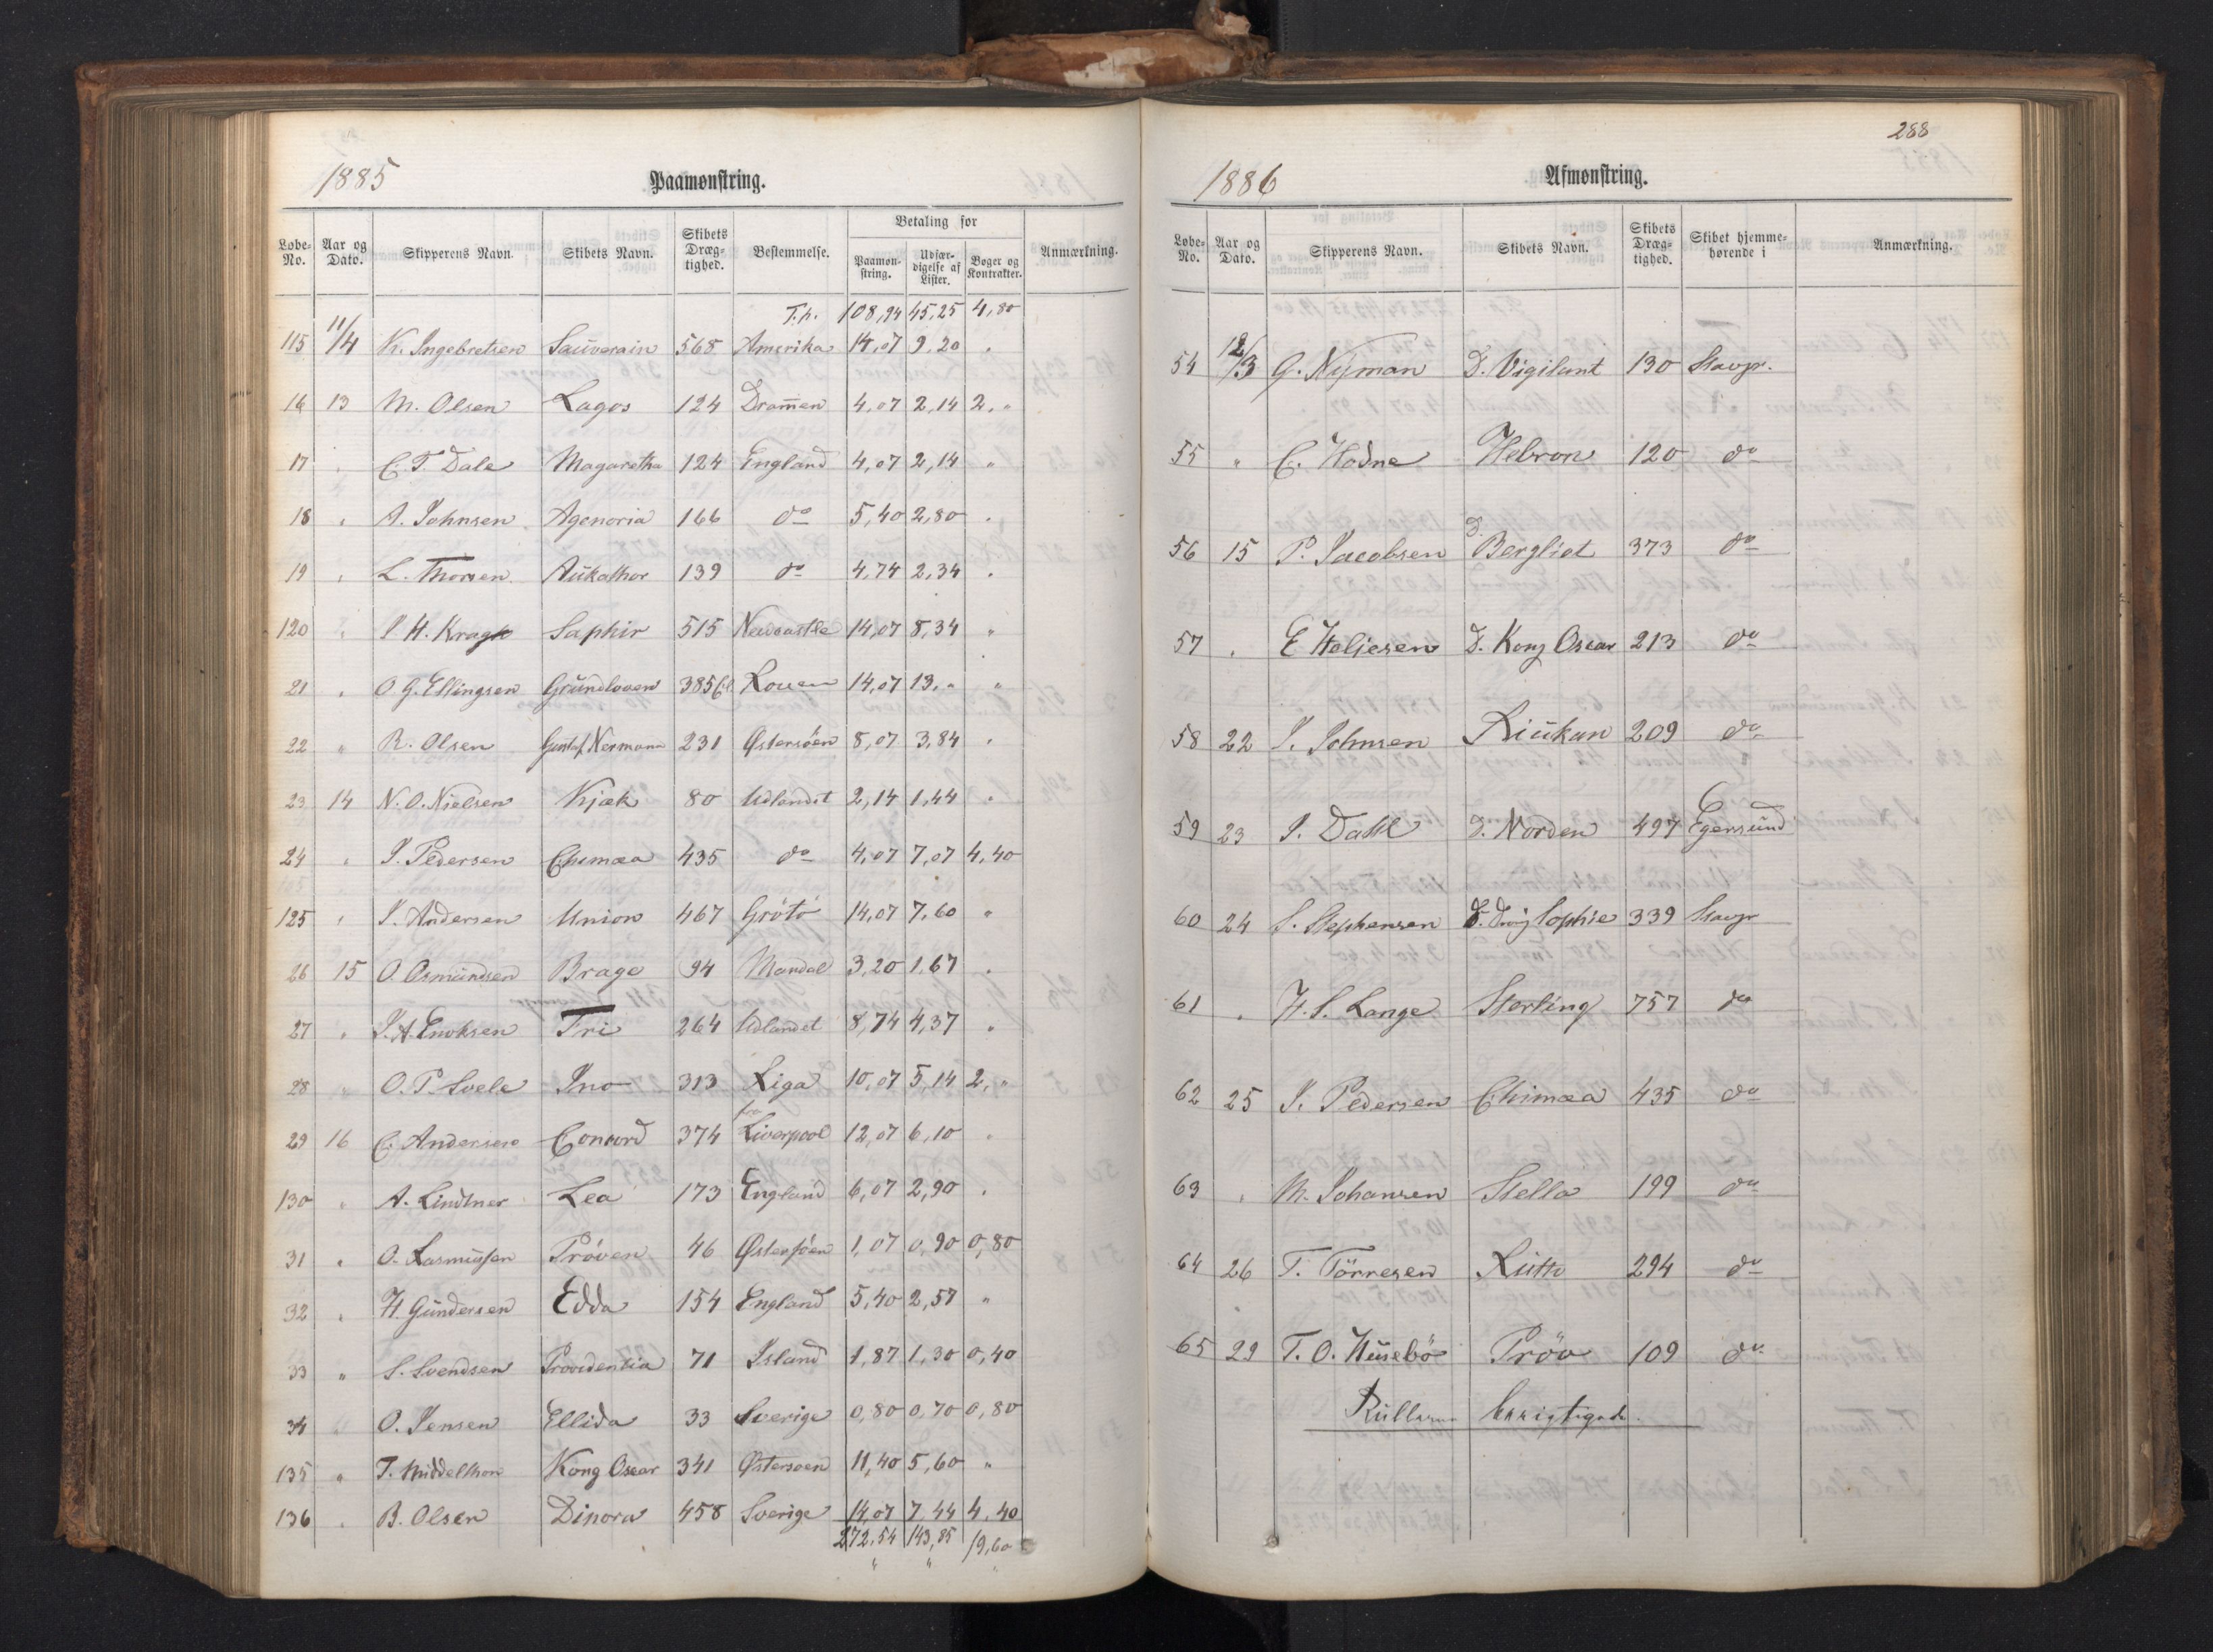 1885
Paamønstring.
Løbe-No. Aar og Dato. Skipperens Navn. Skibets Navn. Skibets Dræg-tighed. Bestemmelse. Betaling for Paamøn-string. Udfær-digelse af Lister. Bøger og Kontrakter. Anmærkning.
T.p. 108,94 45,25 4,80
115 11/4 K. Ingebretsen Sauverain 568 Amerika 14,07 9,20 "
16 13 M. Olsen Lagos 124 Dramen 4,07 2,14 2,"
17 " C. T. Dale Magaretha 124 England 4,07 2,14 "
18 " A. Johnsen Agenoria 166 do 5,40 2,80 "
19 " L. Thorsen Aukathor 139 do 4,74 2,34 "
120 " J H. Kragh Saphir 515 Newcastle 14,07 8,34 "
21 " O. G. Ellingsen Grundloven 385 Rouen 14,07 13," "
22 " R. Olsen Gustaf Nermann 231 Østersøen 8,07 3,84 "
23 14 N. O. Nielsen Kjæk 80 Udlandet 2,14 1,44 "
24 " J. Pedersen Chimæa 435 do 4,07 7,07 4,40
125 " J. Andersen Union 467 Grötö 14,07 7,60 "
26 15 O. Osmundsen Brage 94 Mandal 3,20 1,67 "
27 " J. A. Enoksen Fri 264 Udlandet 8,74 4,37 "
28 " O. P. Svele Ino 313 Riga 10,07 5,14 2,"
29 16 C. Andersen Concord 374 fra Liverpool 12,07 6,10 "
130 " A. Lindtner Lea 173 England 6,07 2,90 "
31 " O. Rasmussen Pröven 46 Østersøen 1,07 0,90 0,80
32 " H. Gundersen Edda 154 England 5,40 2,57 "
33 " S. Svendsen Providentia 71 Island 1,87 1,30 0,40
34 " O. Jensen Ellida 33 Sverige 0,80 0,70 0,80
135 " T. Middelthon Kong Oscar 341 Østersøen 11,40 5,60 "
136 " B. Olsen Dinora 458 Sverige 14,07 7,44 4,40
272,54 143,85 19,60
288
1886
Afmønstring.
Løbe-No. Aar og Dato. Skipperens Navn. Skibets Navn. Skibets Dræg-tighed. Skibet hjemme-hørende i Anmærkning.
54 12/3 G. Nyman D. Vigilant 130 Stavgr.
55 " C. Hodne Hebron 120 do
56 15 P. Jacobsen D. Bergliot 373 do
57 " E Heljesen D. Kong Oscar 213 do
58 22 J. Johnsen Riukan 209 do
59 23 J. Dahl D. Norden 497 Egersund
60 24 S. Stephensen D. Drng Sophie 339 Stavgr
61 " H. S. Lange Sterling 757 do
62 25 J. Pedersen Chimæa 435 do
63 " M. Johansen Stella 199 do
64 26 T. Törresen Ruth 294 do
65 29 T. O. Husebö Pröv 109 do
Rullerne berigtigede.